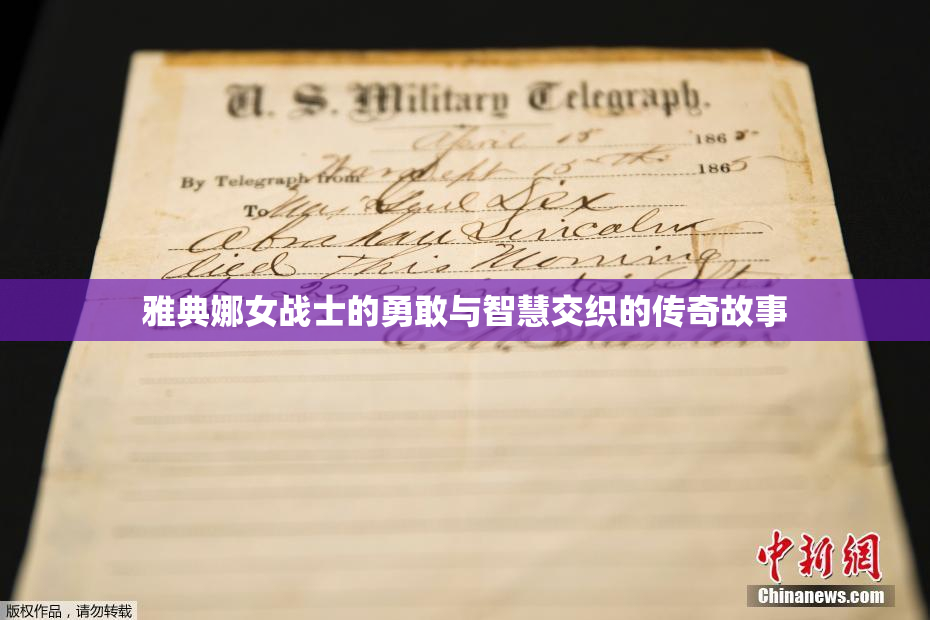 U. S. Military Telegraph.
April 15 1865
By Telegraph from War Dept 15th 1865
To Maj Genl Dix
Abraham Lincoln
died This Morning
at 22 minutes after
雅典娜女战士的勇敢与智慧交织的传奇故事
E. M. Stanton
中新網
Chinanews.com
版权作品，请勿转载